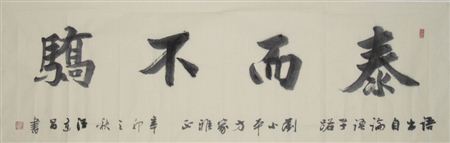 泰而不驕
語出自論語子路 劉小平方家雅正 辛卯之秋 書